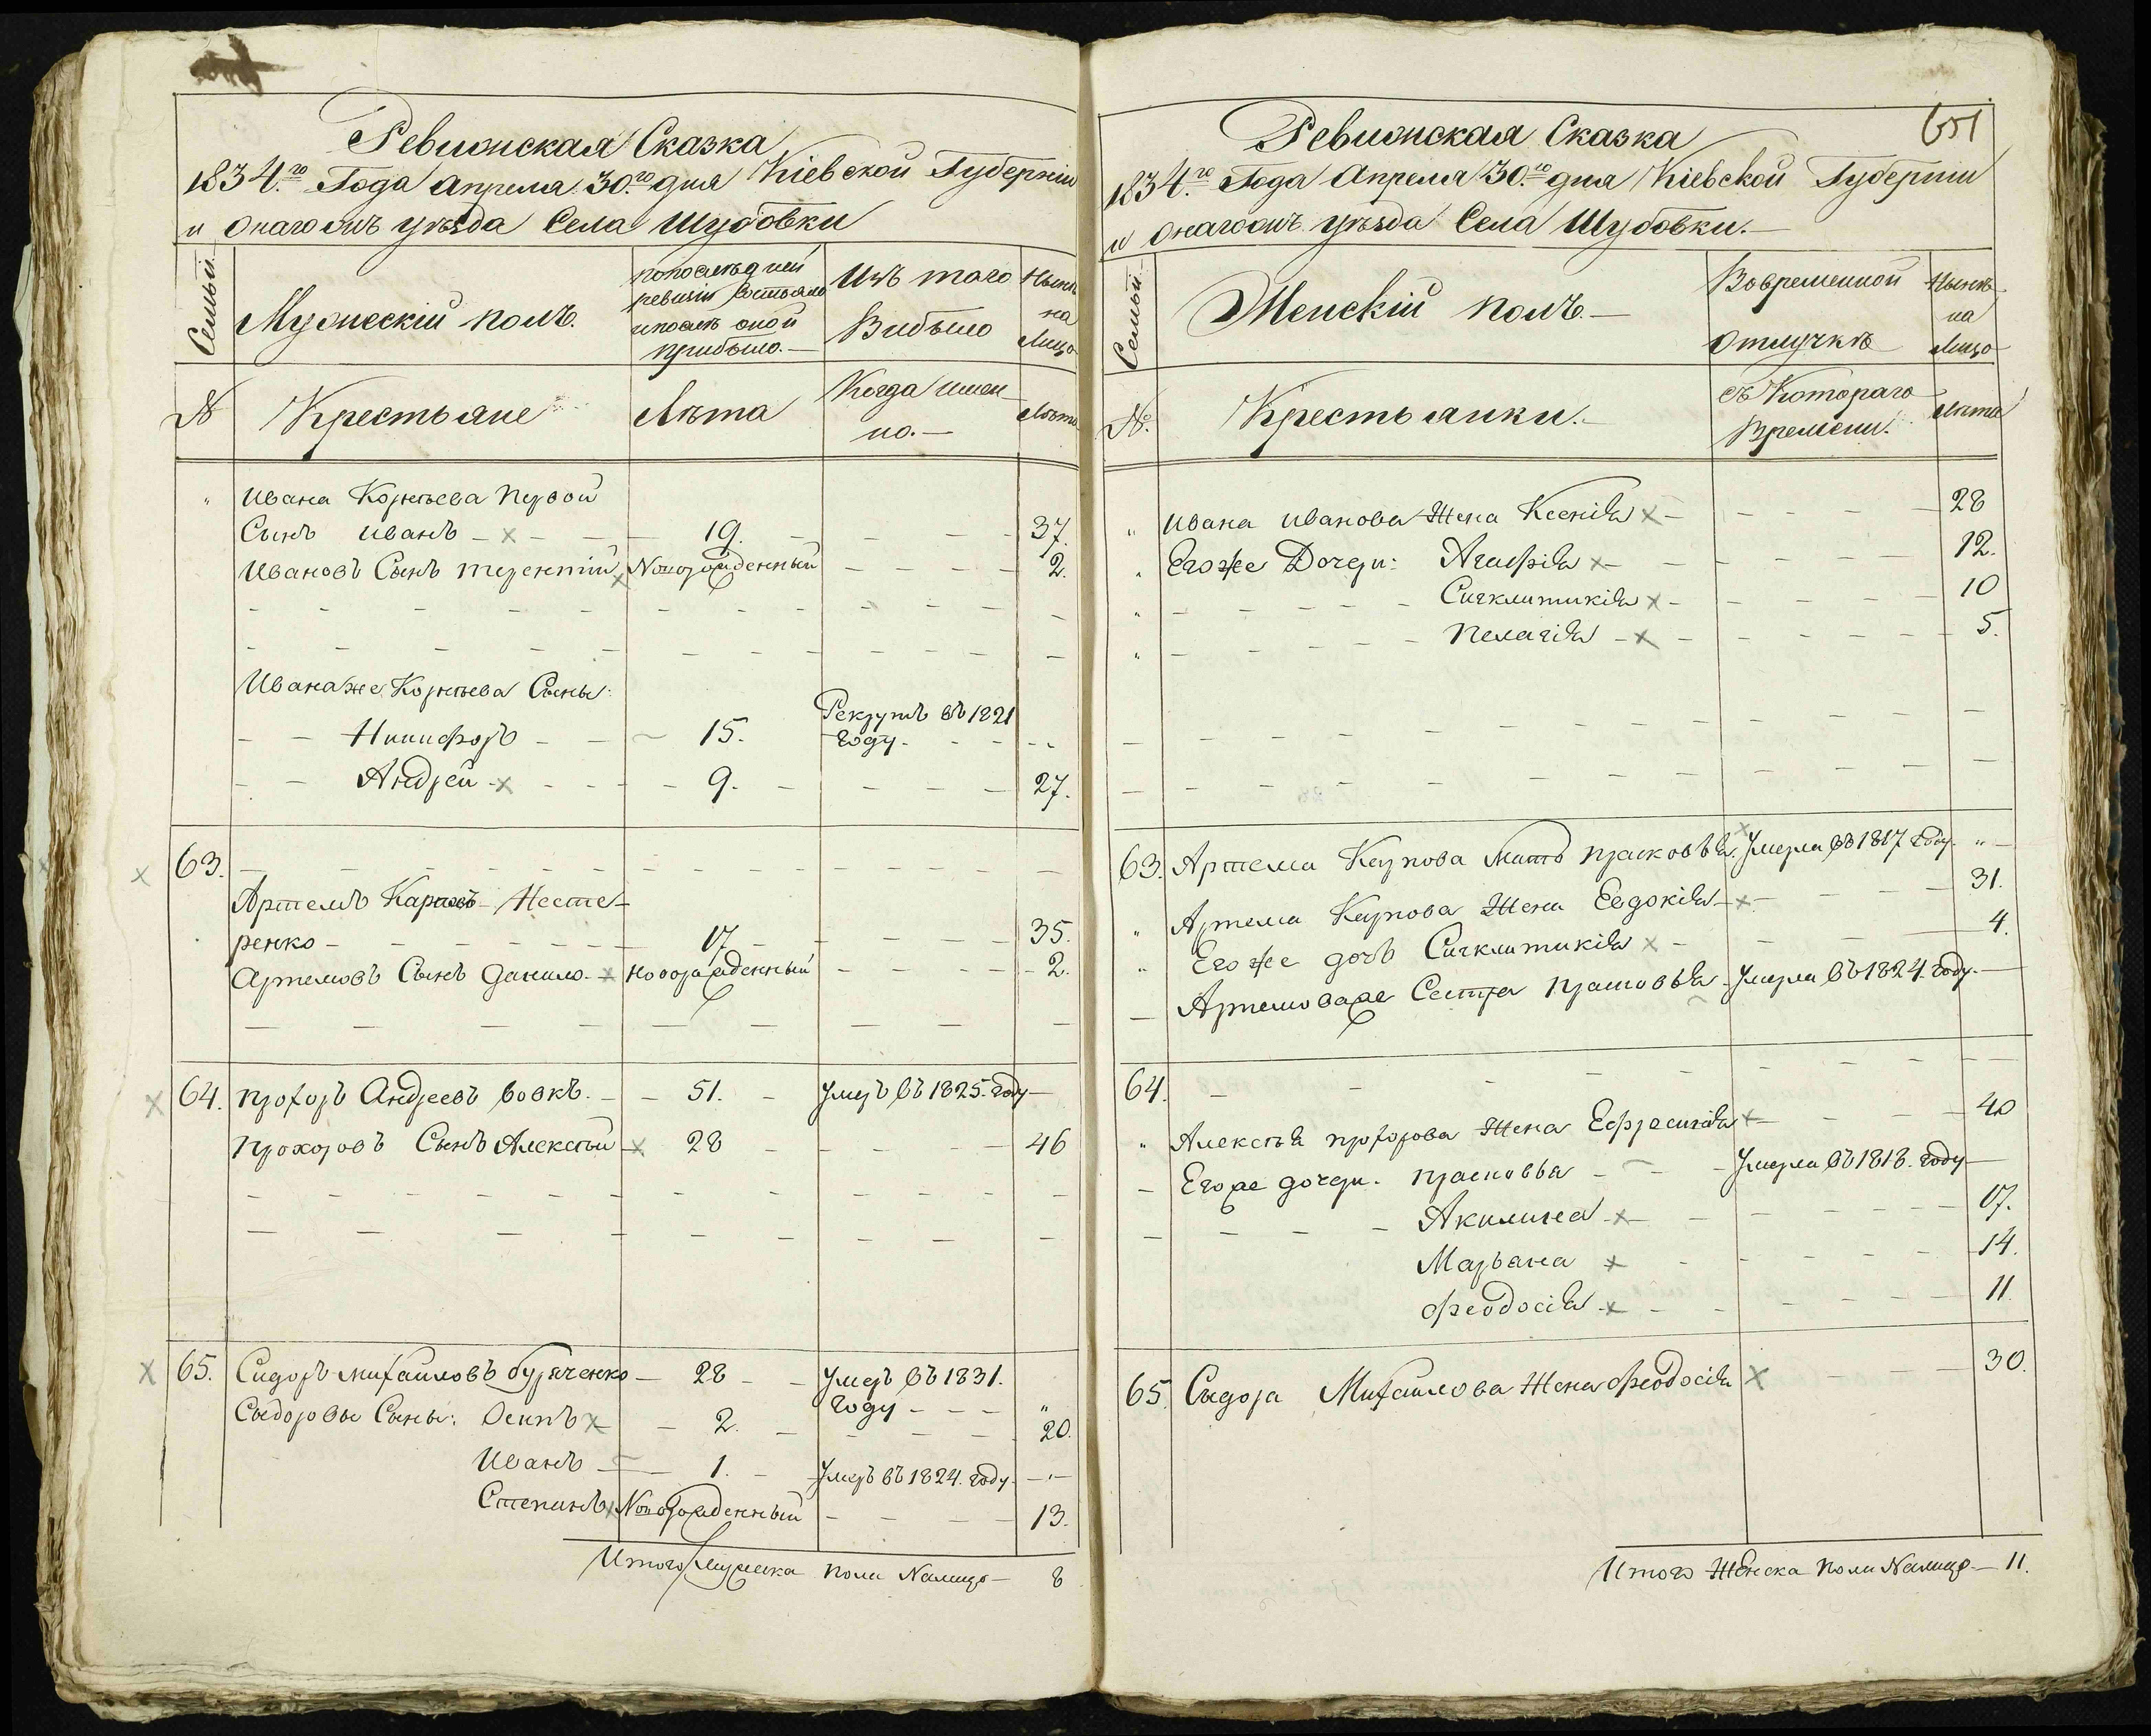 Ревизская Сказка
1834.го Года апреля 30.го дня Кіевской Губерніи
и онагожъ уѣзда Села Шубовки
Семьи
Мужескій полъ.
по послѣдней
ревизіи состояло
и послѣ оной
прибыло.
Изъ того
Выбыло
Нынѣ
на
Лицо
№
Крестьяне
Лѣта
Когда имен-
но.
Лѣта
Ивана Корнѣева первой
Сынъ Иванъ 19. 37.
Ивановъ Сынъ терентій Новорожденный 2.
Ивана же Корнѣева Сыны:
Рекрутъ въ 1821
Никифоръ 15. году.
Андрей 9. 27.
63.
Артемъ Карповъ Несте-
ренко 17 35.
Артемовъ Сынъ данило новорожденный 2.
64. прохоръ Андреевъ вовкъ. 51. Умеръ въ 1825. году
Прохоровъ Сынъ Алексѣй 28 46
65. Сидоръ михайловъ буряченко 28 Умеръ въ 1831.
году
Сыдоровы Сыны: Осипъ 2. 20.
Иванъ 1. Умеръ въ 1824. году.
Степанъ Новорожденный 13.
Итого мужеска пола Налицо 8
651
Ревизская Сказка
1834.го Года Апреля 30.го дня Кіевской Губерніи
и онагожъ уѣзда Села Шубовки.
Семьи
Женскій полъ.
Вовременной
отлучкѣ
Нынѣ
на
Лицо
№.
Крестьянки.
съ Котораго
Времени.
Лѣта
Ивана Иванова Жена Ксенія 28
Егоже Дочери: Агафія 12.
Сигклитикія 10
Пелагія 5.
63. Артема Карпова Мать прасковья. Умерла въ 1817 году.
Артема Карпова Жена Евдокія 31.
Егоже дочь Сигклитикія 4.
Артемоваже Сестра прасковья Умерла въ 1824. году.
64.
Алексѣя прохорова Жена Ефросинія 40
Егоже дочери. прасковья Умерла въ 1818. году
Акилина 17.
Марьяна 14.
феодосія 11.
65. Сыдора Михайлова Жена феодосія 30.
Итого Женска пола Налицо 11.